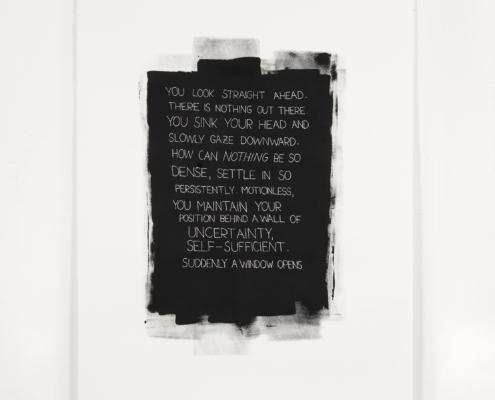 YOU LOOK STRAIGHT AHEAD.
THERE IS NOTHING OUT THERE.
YOU SINK YOUR HEAD AND
SLOWLY GAZE DOWNWARD.
HOW CAN NOTHING BE SO
DENSE, SETTLE IN SO
PERSISTENTLY. MOTIONLESS,
YOU MAINTAIN YOUR
POSITION BEHIND A WALL OF
UNCERTAINTY,
SELF-SUFFICIENT.
SUDDENLY A WINDOW OPENS